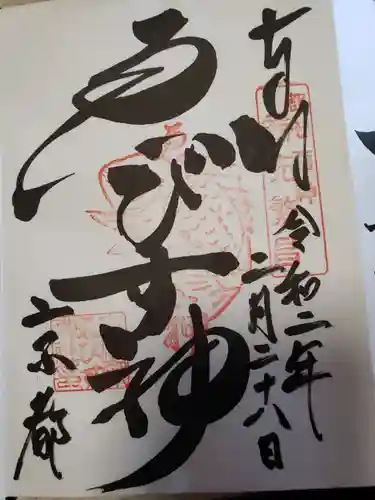 奉拝
令和二年
二月二十八日
ゑびす神
京都